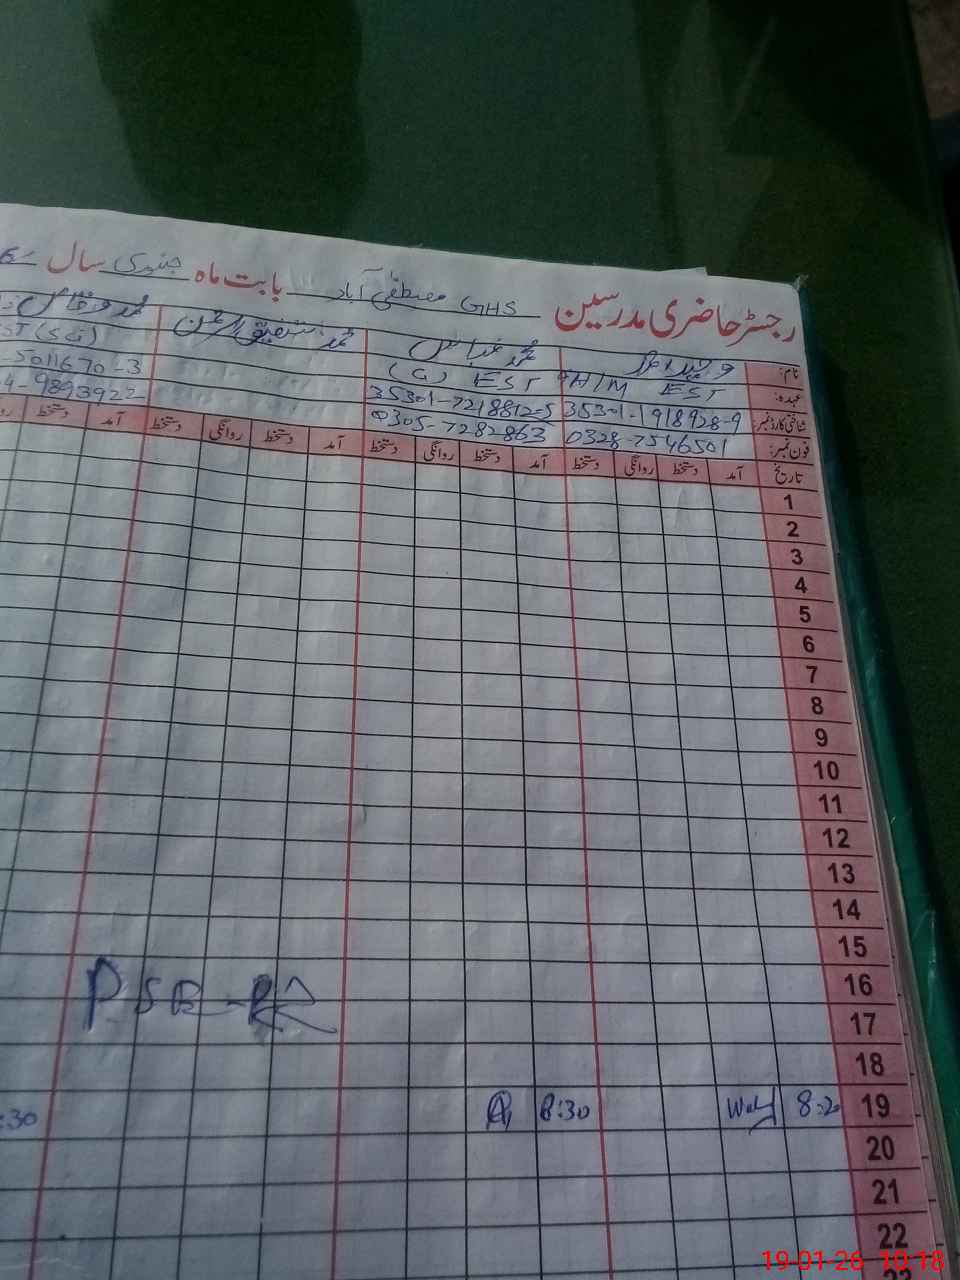 رجسٹر حاضری مدرسین GHS مصطفیٰ آباد بابت ماہ جنوری سال
نام: وحید محمد عباس محمد شفیق الرحمٰن محمد وقاص
عہدہ: EST H/M EST (G) ST (SG)
شناختی کارڈ نمبر: 35301-1918928-9 35301-7218812-5 5011670-3
فون نمبر: 0328-7546501 0305-7282863 4-9893922
تاریخ آمد دستخط روانگی دستخط آمد دستخط روانگی دستخط آمد دستخط روانگی دستخط آمد دستخط
1
2
3
4
5
6
7
8
9
10
11
12
13
14
15
16
17
18
19 8:20 8:30 :30
20
21
22
19-01-26 10:18